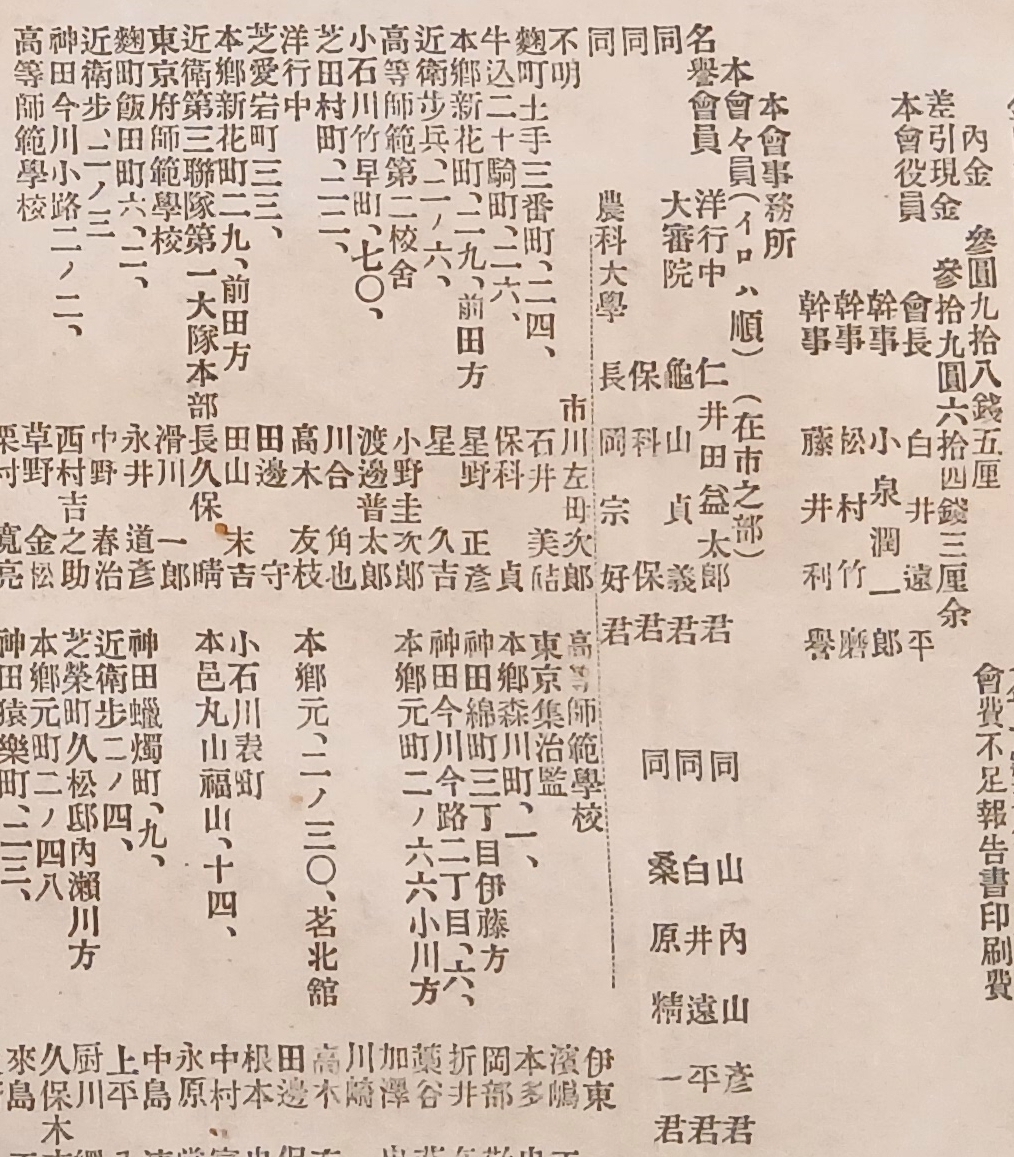 會費不足報告書印刷費
內金　參圓九拾八錢五厘
差引現金　參拾九圓六拾四錢三厘余
本會役員
會長　白井遠平
幹事　小泉潤一郎
幹事　松村竹磨
幹事　藤井利譽
本會事務所
本會々員(イロハ順)(在市之部)
名譽會員　洋行中　仁井田益太郎君
同　大審院　龜山貞義君
同　保科保君
同　農科大學長　岡宗好君
同　山內山彥君
同　白井遠平君
同　桑原精一君
市川左田次郎
麴町土手三番町、二四、　石井美
牛込二十騎町、二六、　保科貞
本鄉新花町、二九、前田方　星野正彥
近衞步兵、二ノ六、　星久吉
高等師範第二校舍　小野圭次郎
小石川竹早町、七〇、　渡邊普太郎
芝田村町、二二、　川合角也
洋行中　高木友枝
芝愛宕町三三、　田邊守
本鄉新花町二九、前田方　田山末吉
近衞第三聯隊第一大隊本部　長久保晴
東京府師範學校　滑川一郎
麴町飯田町六、二、　永井道彥
近衞步、二ノ三　中野春治
神田今川小路二ノ二、　西村吉之助
高等師範學校　草野金松
栗村寬亮
不明
高等師範學校
東京集治監
本鄉森川町、一、
神田錦町三丁目伊藤方
神田今川今路二丁目、六、
本鄉元町二ノ六六小川方
本鄉元、二ノ三〇、茗北舘
小石川表町
本邑丸山福山、十四、
神田蠟燭町、九、
近衞步二ノ四、
芝榮町久松邸內瀨川方
本鄉元町二ノ四八
神田猿樂町、二三、
伊東
濱嶋
本多
岡部
折井
藁谷
加澤
川崎
高木
田邊
根本
中村
永原
中島
上平
厨川
久保木
來島